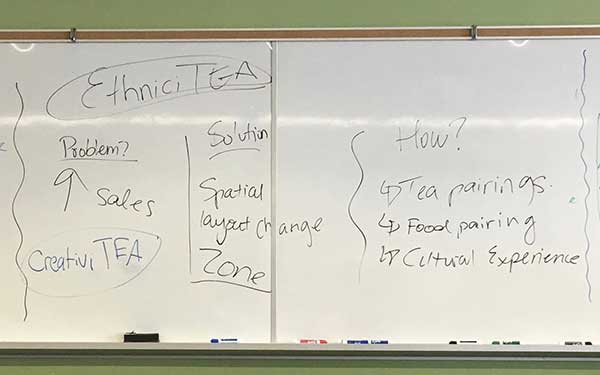 EthniciTEA
Problem?
↑ Sales
CreativiTEA
Solution
Spatial
layout change
Zone
How?
↳ Tea pairings.
↳ Food pairing
↳ Cultural Experience